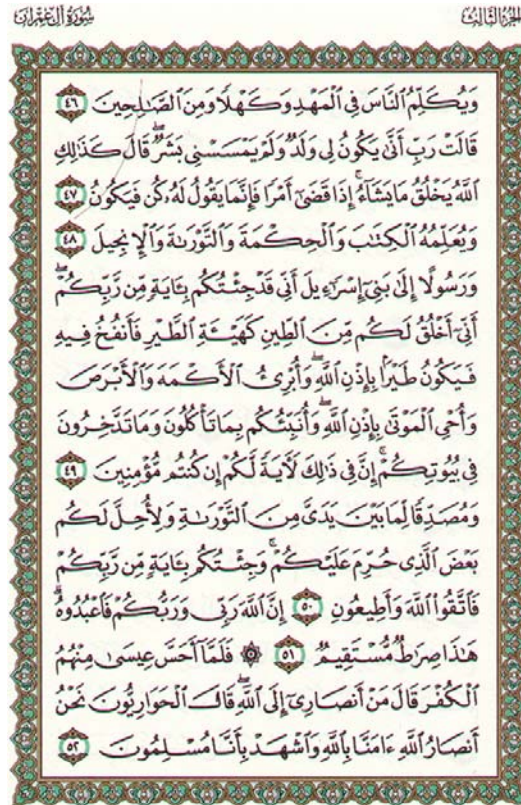 سُورَةُ آلِ عِمْرَانَ
الجُزْءُ الثَّالِثُ
وَيُكَلِّمُ ٱلنَّاسَ فِى ٱلْمَهْدِ وَكَهْلًا وَمِنَ ٱلصَّـٰلِحِينَ ٤٦
قَالَتْ رَبِّ أَنَّىٰ يَكُونُ لِى وَلَدٌ وَلَمْ يَمْسَسْنِى بَشَرٌ ۖ قَالَ كَذَٰلِكِ
ٱللَّهُ يَخْلُقُ مَا يَشَآءُ ۚ إِذَا قَضَىٰٓ أَمْرًا فَإِنَّمَا يَقُولُ لَهُۥ كُن فَيَكُونُ ٤٧
وَيُعَلِّمُهُ ٱلْكِتَـٰبَ وَٱلْحِكْمَةَ وَٱلتَّوْرَىٰةَ وَٱلْإِنجِيلَ ٤٨
وَرَسُولًا إِلَىٰ بَنِىٓ إِسْرَٰٓءِيلَ أَنِّى قَدْ جِئْتُكُم بِـَٔايَةٍ مِّن رَّبِّكُمْ ۖ
أَنِّىٓ أَخْلُقُ لَكُم مِّنَ ٱلطِّينِ كَهَيْـَٔةِ ٱلطَّيْرِ فَأَنفُخُ فِيهِ
فَيَكُونُ طَيْرًۢا بِإِذْنِ ٱللَّهِ ۖ وَأُبْرِئُ ٱلْأَكْمَهَ وَٱلْأَبْرَصَ
وَأُحْىِ ٱلْمَوْتَىٰ بِإِذْنِ ٱللَّهِ ۖ وَأُنَبِّئُكُم بِمَا تَأْكُلُونَ وَمَا تَدَّخِرُونَ
فِى بُيُوتِكُمْ ۚ إِنَّ فِى ذَٰلِكَ لَـَٔايَةً لَّكُمْ إِن كُنتُم مُّؤْمِنِينَ ٤٩
وَمُصَدِّقًا لِّمَا بَيْنَ يَدَىَّ مِنَ ٱلتَّوْرَىٰةِ وَلِأُحِلَّ لَكُم
بَعْضَ ٱلَّذِى حُرِّمَ عَلَيْكُمْ ۚ وَجِئْتُكُم بِـَٔايَةٍ مِّن رَّبِّكُمْ
فَٱتَّقُوا۟ ٱللَّهَ وَأَطِيعُونِ ٥٠ إِنَّ ٱللَّهَ رَبِّى وَرَبُّكُمْ فَٱعْبُدُوهُ ۗ
هَـٰذَا صِرَٰطٌ مُّسْتَقِيمٌ ٥١ ۞ فَلَمَّآ أَحَسَّ عِيسَىٰ مِنْهُمُ
ٱلْكُفْرَ قَالَ مَنْ أَنصَارِىٓ إِلَى ٱللَّهِ ۖ قَالَ ٱلْحَوَارِيُّونَ نَحْنُ
أَنصَارُ ٱللَّهِ ءَامَنَّا بِٱللَّهِ وَٱشْهَدْ بِأَنَّا مُسْلِمُونَ ٥٢